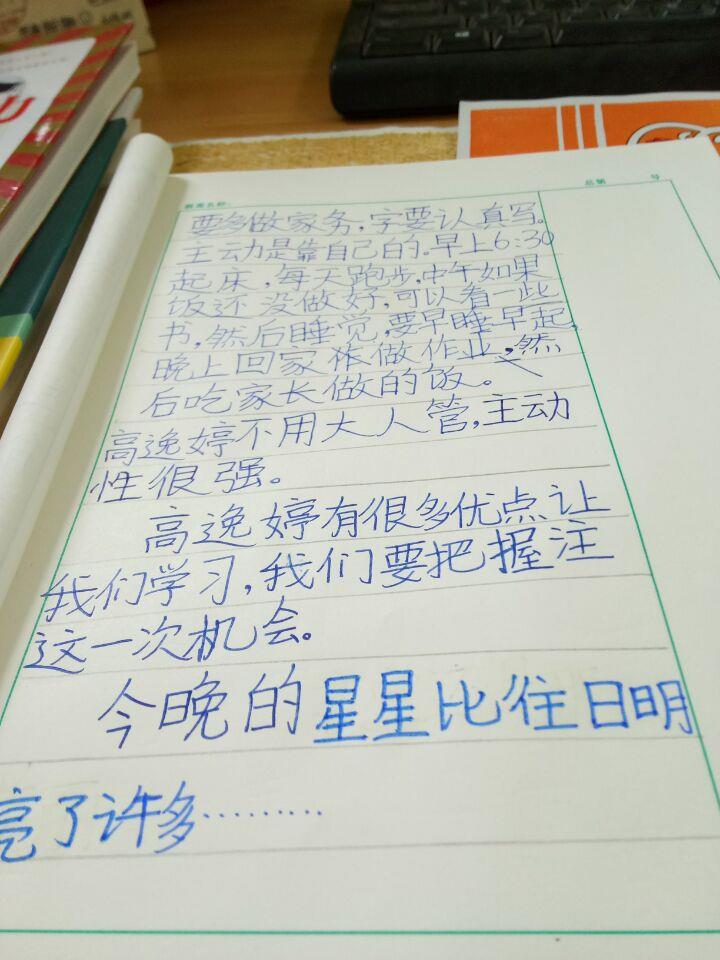 教案名称:
总第 号
要多做家务,字要认真写。
主动是靠自己的。早上6:30
起床,每天跑步,中午如果
饭还没做好,可以看一些
书,然后睡觉,要早睡早起,
晚上回家做作业,然
后吃家长做的饭。
高逸婷不用大人管,主动
性很强。
高逸婷有很多优点让
我们学习,我们要把握注
这一次机会。
今晚的星星比往日明
亮了许多………